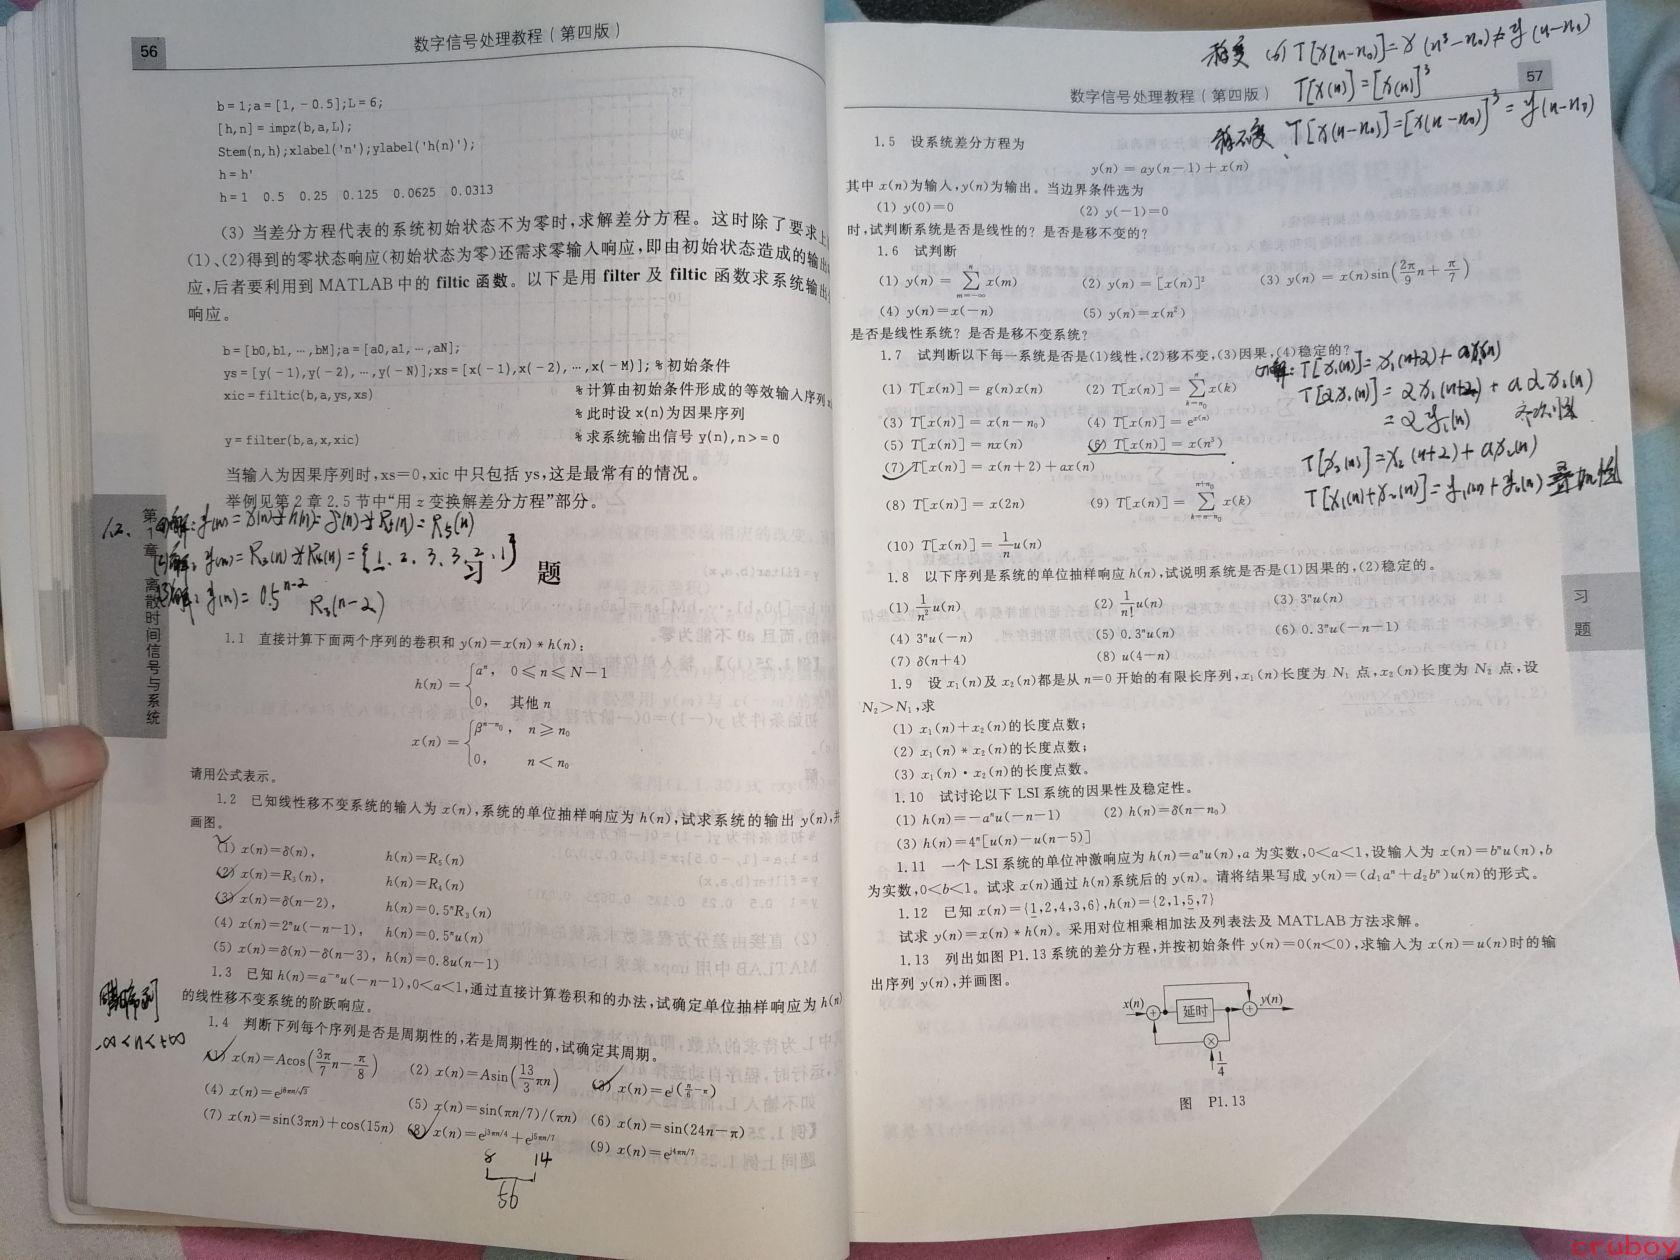 56
数字信号处理教程(第四版)
b=1;a=[1,-0.5];L=6;
[h,n]=impz(b,a,L);
Stem(n,h);xlabel('n');ylabel('h(n)');
h=h'
h=1 0.5 0.25 0.125 0.0625 0.0313
(3) 当差分方程代表的系统初始状态不为零时,求解差分方程。这时除了要求上
(1)、(2)得到的零状态响应(初始状态为零)还需求零输入响应,即由初始状态造成的输出
应,后者要利用到 MATLAB 中的 filtic 函数。以下是用 filter 及 filtic 函数求系统输出
响应。
b=[b0,b1,…,bM];a=[a0,a1,…,aN];
ys=[y(-1),y(-2),…,y(-N)];xs=[x(-1),x(-2),…,x(-M)]; %初始条件
xic=filtic(b,a,ys,xs) %计算由初始条件形成的等效输入序列x
%此时设 x(n)为因果序列
y=filter(b,a,x,xic) %求系统输出信号 y(n),n>=0
当输入为因果序列时,xs=0,xic 中只包括 ys,这是最常有的情况。
举例见第 2 章 2.5 节中“用 z 变换解差分方程”部分。
第1章 离散时间信号与系统
1.2. (1)解: y(n)=x(n)*h(n)=δ(n)*R5(n)=R5(n)
(2)解: y(n)=R3(n)*R4(n)={1, 2, 3, 3, 2, 1}
(3)解: y(n)=0.5^(n-2) R3(n-2)
习 题
1.1 直接计算下面两个序列的卷积和 y(n)=x(n)*h(n);
h(n)={a^n, 0≤n≤N-1
0, 其他 n
x(n)={β^(n-n0), n≥n0
0, n<n0
请用公式表示。
1.2 已知线性移不变系统的输入为 x(n),系统的单位抽样响应为 h(n),试求系统的输出 y(n),并
画图。
(1) x(n)=δ(n), h(n)=R5(n)
(2) x(n)=R3(n), h(n)=R4(n)
(3) x(n)=δ(n-2), h(n)=0.5^n R3(n)
(4) x(n)=2^n u(-n-1), h(n)=0.5^n u(n)
(5) x(n)=δ(n)-δ(n-3), h(n)=0.8u(n-1)
1.3 已知 h(n)=a^(-n)u(-n-1),0<a<1,通过直接计算卷积和的办法,试确定单位抽样响应为 h(n)
的线性移不变系统的阶跃响应。
1.4 判断下列每个序列是否是周期性的,若是周期性的,试确定其周期。
-∞<n<+∞
(1) x(n)=Acos(3π/7 n-π/8) (2) x(n)=Asin(13/3 πn) (3) x(n)=e^(j(n/6-π))
(4) x(n)=e^(j8πn/√3) (5) x(n)=sin(πn/7)/(πn) (6) x(n)=sin(24n-π)
(7) x(n)=sin(3πn)+cos(15n) (8) x(n)=e^(j3πn/4)+e^(j5πn/7) (9) x(n)=e^(j4πn/7)
8 14
56
移变 (6) T[x(n-n0)]=x(n³-n0)≠y(n-n0)
T[x(n)]=[x(n)]³
移不变 T[x(n-n0)]=[x(n-n0)]³=y(n-n0)
数字信号处理教程(第四版)
57
1.5 设系统差分方程为
y(n)=ay(n-1)+x(n)
其中 x(n)为输入,y(n)为输出。当边界条件选为
(1) y(0)=0 (2) y(-1)=0
时,试判断系统是否是线性的?是否是移不变的?
1.6 试判断
(1) y(n)=∑_{m=-∞}^{n} x(m) (2) y(n)=[x(n)]² (3) y(n)=x(n)sin(2π/9 n+π/7)
(4) y(n)=x(-n) (5) y(n)=x(n²)
是否是线性系统?是否是移不变系统?
1.7 试判断以下每一系统是否是(1)线性,(2)移不变,(3)因果,(4)稳定的?
(1) T[x(n)]=g(n)x(n) (2) T[x(n)]=∑_{k=n0}^{n} x(k)
(3) T[x(n)]=x(n-n0) (4) T[x(n)]=e^(x(n))
(5) T[x(n)]=nx(n) (6) T[x(n)]=x(n³)
(7) T[x(n)]=x(n+2)+ax(n)
(8) T[x(n)]=x(2n) (9) T[x(n)]=∑_{k=n-n0}^{n+n0} x(k)
(10) T[x(n)]=1/n u(n)
解: T[x1(n)]=x1(n+2)+ax1(n)
T[αx1(n)]=αx1(n+2)+aαx1(n)
=αy1(n) 齐次性
T[x2(n)]=x2(n+2)+ax2(n)
T[x1(n)+x2(n)]=y1(n)+y2(n) 叠加性
1.8 以下序列是系统的单位抽样响应 h(n),试说明系统是否是(1)因果的,(2)稳定的。
(1) 1/n² u(n) (2) 1/n! u(n) (3) 3^n u(n)
(4) 3^n u(-n) (5) 0.3^n u(n) (6) 0.3^n u(-n-1)
(7) δ(n+4) (8) u(4-n)
习题
1.9 设 x1(n)及 x2(n)都是从 n=0 开始的有限长序列,x1(n)长度为 N1 点,x2(n)长度为 N2 点,设
N2>N1,求
(1) x1(n)+x2(n)的长度点数;
(2) x1(n)*x2(n)的长度点数;
(3) x1(n)·x2(n)的长度点数。
1.10 试讨论以下 LSI 系统的因果性及稳定性。
(1) h(n)=-a^n u(-n-1) (2) h(n)=δ(n-n0)
(3) h(n)=4^n[u(n)-u(n-5)]
1.11 一个 LSI 系统的单位冲激响应为 h(n)=a^n u(n),a 为实数,0<a<1,设输入为 x(n)=b^n u(n),b
为实数,0<b<1。试求 x(n)通过 h(n)系统后的 y(n)。请将结果写成 y(n)=(d1a^n+d2b^n)u(n)的形式。
1.12 已知 x(n)={1,2,4,3,6},h(n)={2,1,5,7}
试求 y(n)=x(n)*h(n)。采用对位相乘相加法及列表法及 MATLAB 方法求解。
1.13 列出如图 P1.13 系统的差分方程,并按初始条件 y(n)=0(n<0),求输入为 x(n)=u(n)时的输
出序列 y(n),并画图。
x(n) 延时 y(n)
1/4
图 P1.13
cruboy